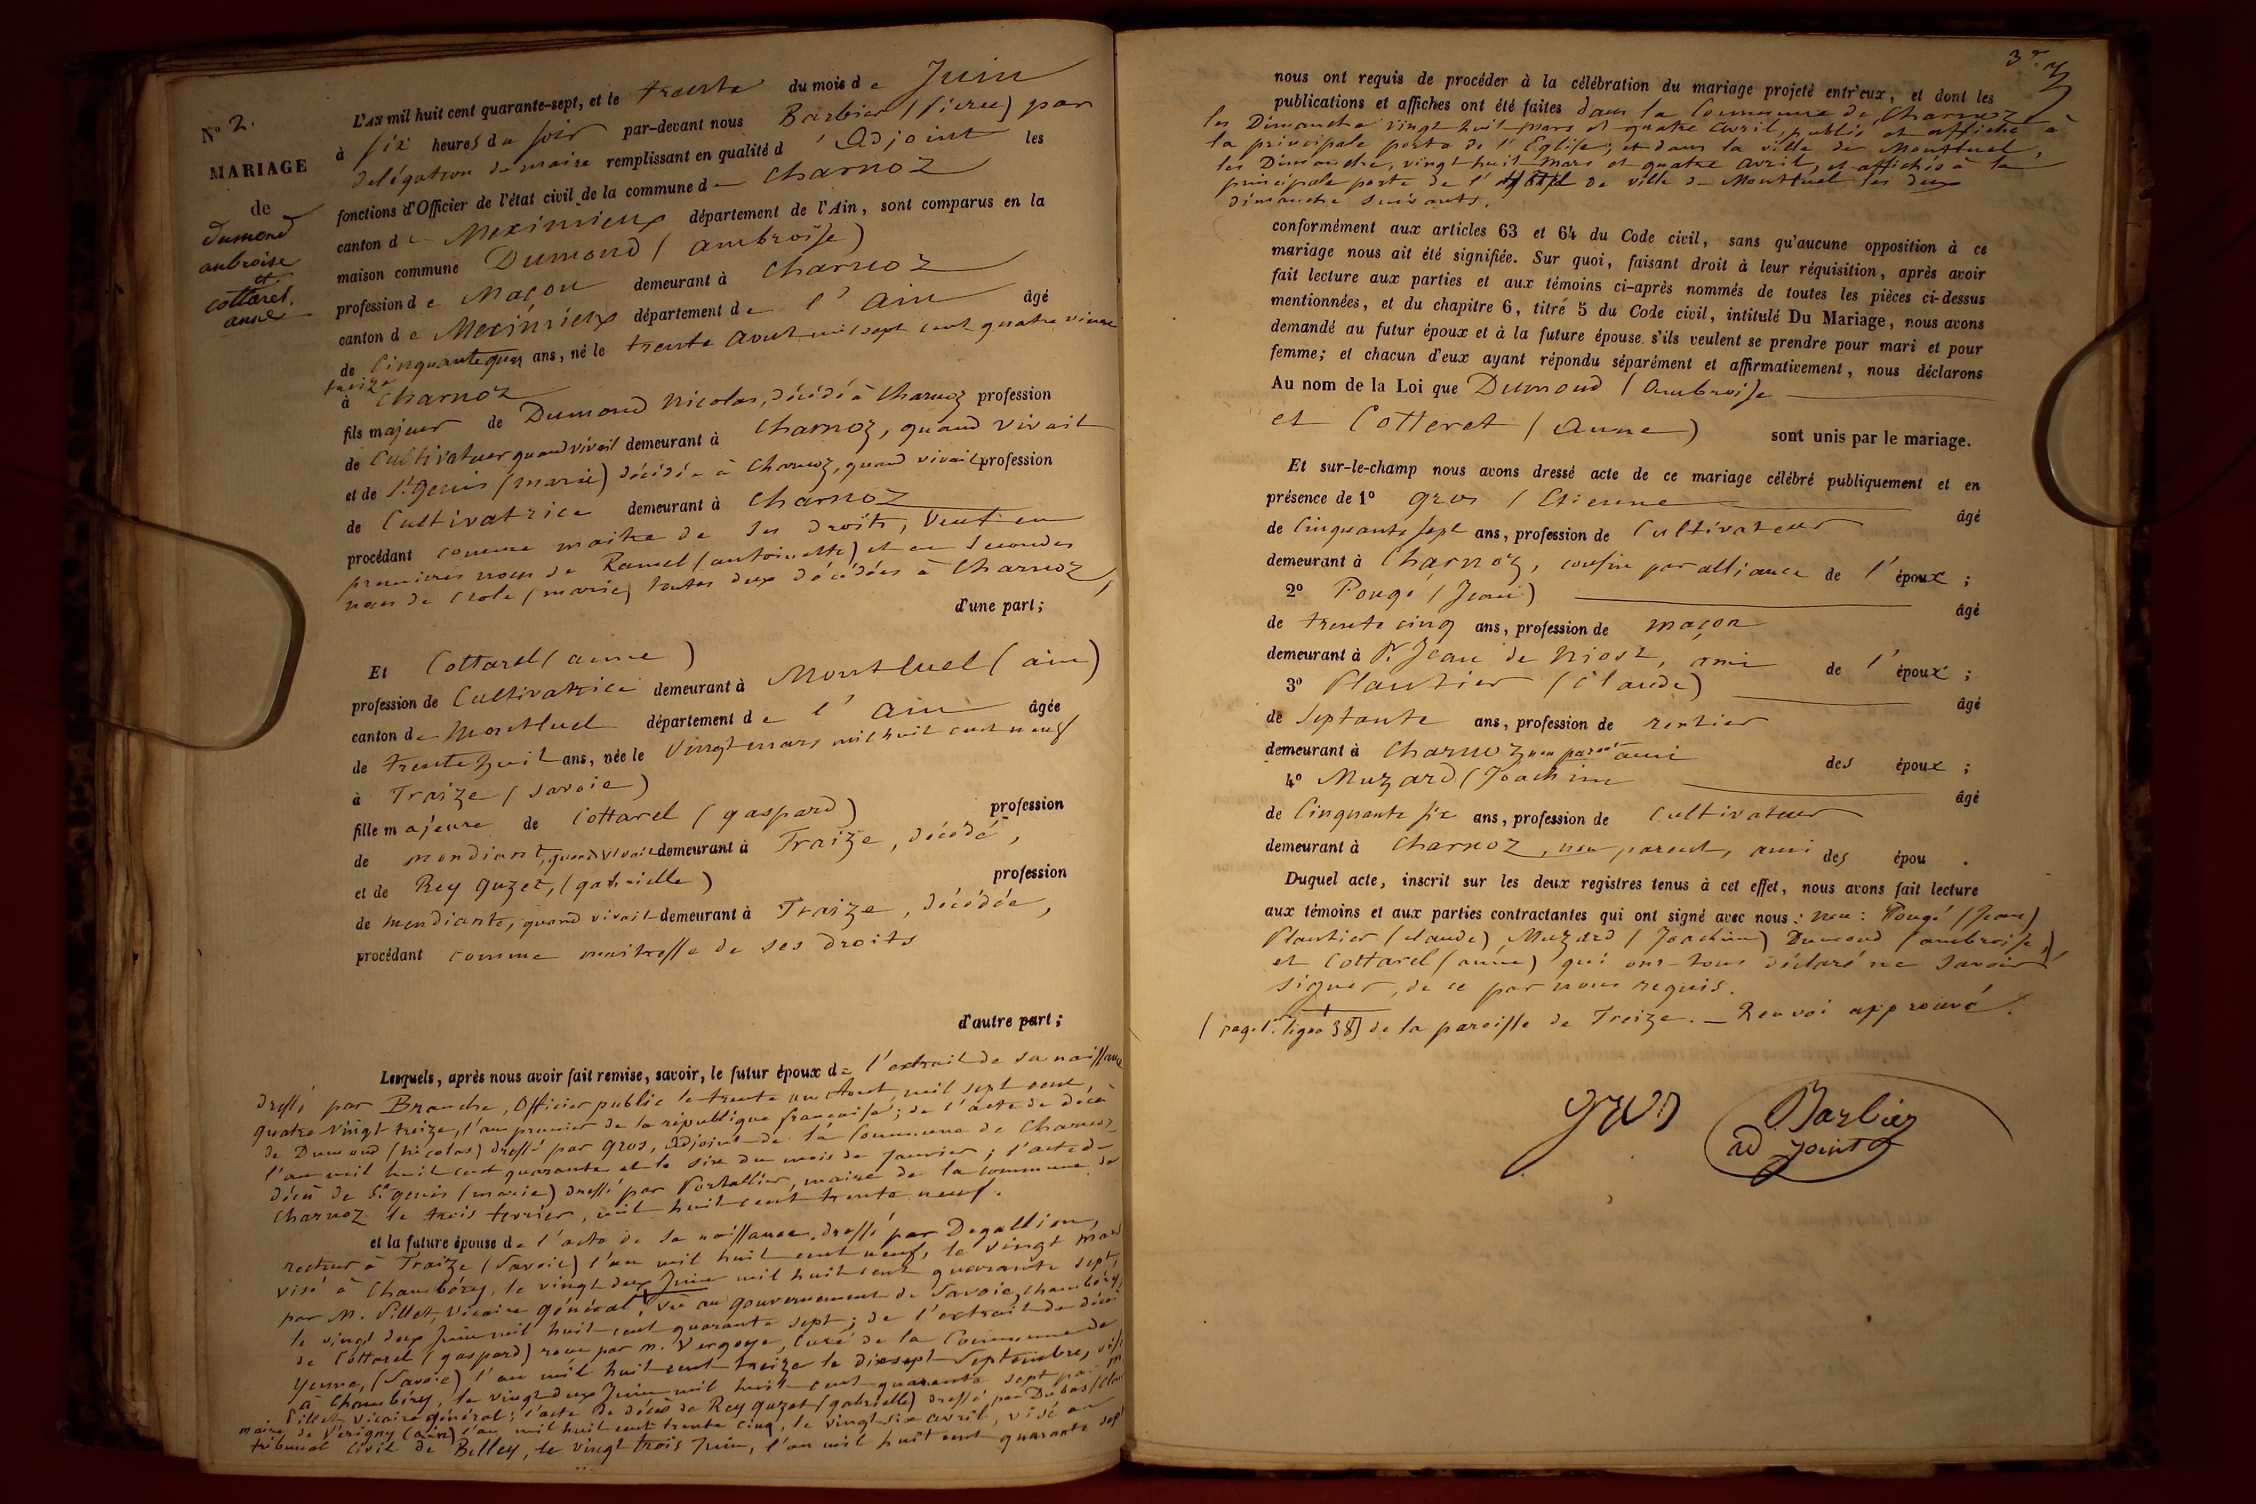 N° 2.
MARIAGE
de
Dumond
ambroise
et
cottarel
anne
L'AN mil huit cent quarante-sept, et le trente du mois de Juin
à six heures du soir par-devant nous Barbier (pierre) par
délégation du maire remplissant en qualité d'Adjoint les
fonctions d'Officier de l'état civil de la commune de Charnoz
canton de Meximieux département de l'Ain, sont comparus en la
maison commune Dumond (ambroise)
profession de Maçon demeurant à Charnoz
canton de Meximieux département de l'Ain âgé
de Cinquante quatre ans, né le trente Aout mil sept cent quatre vingt
treize
à Charnoz
fils majeur de Dumond Nicolas, décédé à Charnoz profession
de Cultivateur quand vivait demeurant à Charnoz, quand vivait
et de St Genis (marie) décédée à Charnoz, quand vivait profession
de Cultivatrice demeurant à Charnoz
procédant comme maitre de ses droits, veuf en
premieres noces de Ramel (antoinette) et en secondes
noces de (marie) toutes deux décédées à Charnoz,
d'une part;
Et Cottarel (anne)
profession de Cultivatrice demeurant à Montluel (ain)
canton de Montluel département de l'Ain âgée
de trente huit ans, née le Vingt mars mil huit cent neuf
à Traize (Savoie)
fille majeure de Cottarel (gaspard) profession
de mendiant, quand vivait demeurant à Traize, décédé,
et de Rey guzet, (gabrielle) profession
de mendiante, quand vivait demeurant à Traize, décédée,
procédant comme maitresse de ses droits
d'autre part;
Lesquels, après nous avoir fait remise, savoir, le futur époux de l'extrait de sa naissance
dressé par Branche, Officier public le trente un Aout, mil sept cent,
quatre vingt treize, l'an premier de la république française; de l'acte de décès
de Dumond (nicolas) dressé par Gros, Adjoint de la Commune de Charnoz
l'an mil huit cent quarante et le six du mois de Janvier; l'acte de
décès de St genis (marie) dressé par maire de la commune de
Charnoz le trois fevrier, mil huit cent trente neuf.
et la future épouse de l'acte de sa naissance, dressé par Degallion,
recteur à Traize (Savoie) l'an mil huit cent neuf, le vingt mars
visé à Chambéry, le vingt deux Juin mil huit cent quarante sept,
par M. Pillet, Vicaire général, vu au gouvernement de Savoie, Chambéry,
le vingt deux Juin mil huit cent quarante sept; de l'extrait de décès
de Cottarel (gaspard) reçu par M. Vergoye, Curé de la Commune de
Yenne, (Savoie) l'an mil huit cent treize le dix sept Septembre, visé
à Chambéry, le vingt deux Juin mil huit cent quarante sept par M.
Pillet Vicaire général; l'acte de décès de Rey guzet (gabrielle) dressé par
maire de Virigny (ain) l'an mil huit cent trente cinq, le vingt six avril, visé au
tribunal Civil de Belley, le vingt trois Juin, l'an mil huit cent quarante sept
nous ont requis de procéder à la célébration du mariage projeté entr'eux, et dont les
publications et affiches ont été faites dans la Commune de Charnoz
les Dimanche vingt huit mars et quatre avril, publié et affiché à
la principale porte de l'Eglise; et dans la ville de Montluel,
les Dimanche, vingt huit Mars et quatre avril, et affichés à la
principale porte de l'hotel de ville de Montluel les deux
dimanche suivants.
conformément aux articles 63 et 64 du Code civil, sans qu'aucune opposition à ce
mariage nous ait été signifiée. Sur quoi, faisant droit à leur réquisition, après avoir
fait lecture aux parties et aux témoins ci-après nommés de toutes les pièces ci-dessus
mentionnées, et du chapitre 6, titré 5 du Code civil, intitulé Du Mariage, nous avons
demandé au futur époux et à la future épouse s'ils veulent se prendre pour mari et pour
femme; et chacun d'eux ayant répondu séparément et affirmativement, nous déclarons
Au nom de la Loi que Dumond (Ambroise
et Cotteret (Anne) sont unis par le mariage.
Et sur-le-champ nous avons dressé acte de ce mariage célébré publiquement et en
présence de 1° Gros (Etienne âgé
de Cinquante sept ans, profession de Cultivateur
demeurant à Charnoz, cousin par alliance de l'époux;
2° Pougé (Jean) âgé
de trente cinq ans, profession de maçon
demeurant à St Jean de Niost, ami de l'époux;
3° Plantier (Claude) âgé
de Septante ans, profession de rentier
demeurant à Charnoz non parent ami des époux;
4° Muzard (Joachim âgé
de Cinquante six ans, profession de Cultivateur
demeurant à Charnoz, non parent, ami des épou .
Duquel acte, inscrit sur les deux registres tenus à cet effet, nous avons fait lecture
aux témoins et aux parties contractantes qui ont signé avec nous: non: Pougé (Jean)
Plantier (claude) Muzard (Joachim) Dumond (ambroise)
et Cottarel (anne) qui ont tous déclaré ne savoir
signer, de ce par nous requis.
(page 1re ligne 38) de la paroisse de Treize. — Renvoi approuvé.
gros
Barbier
adjoint